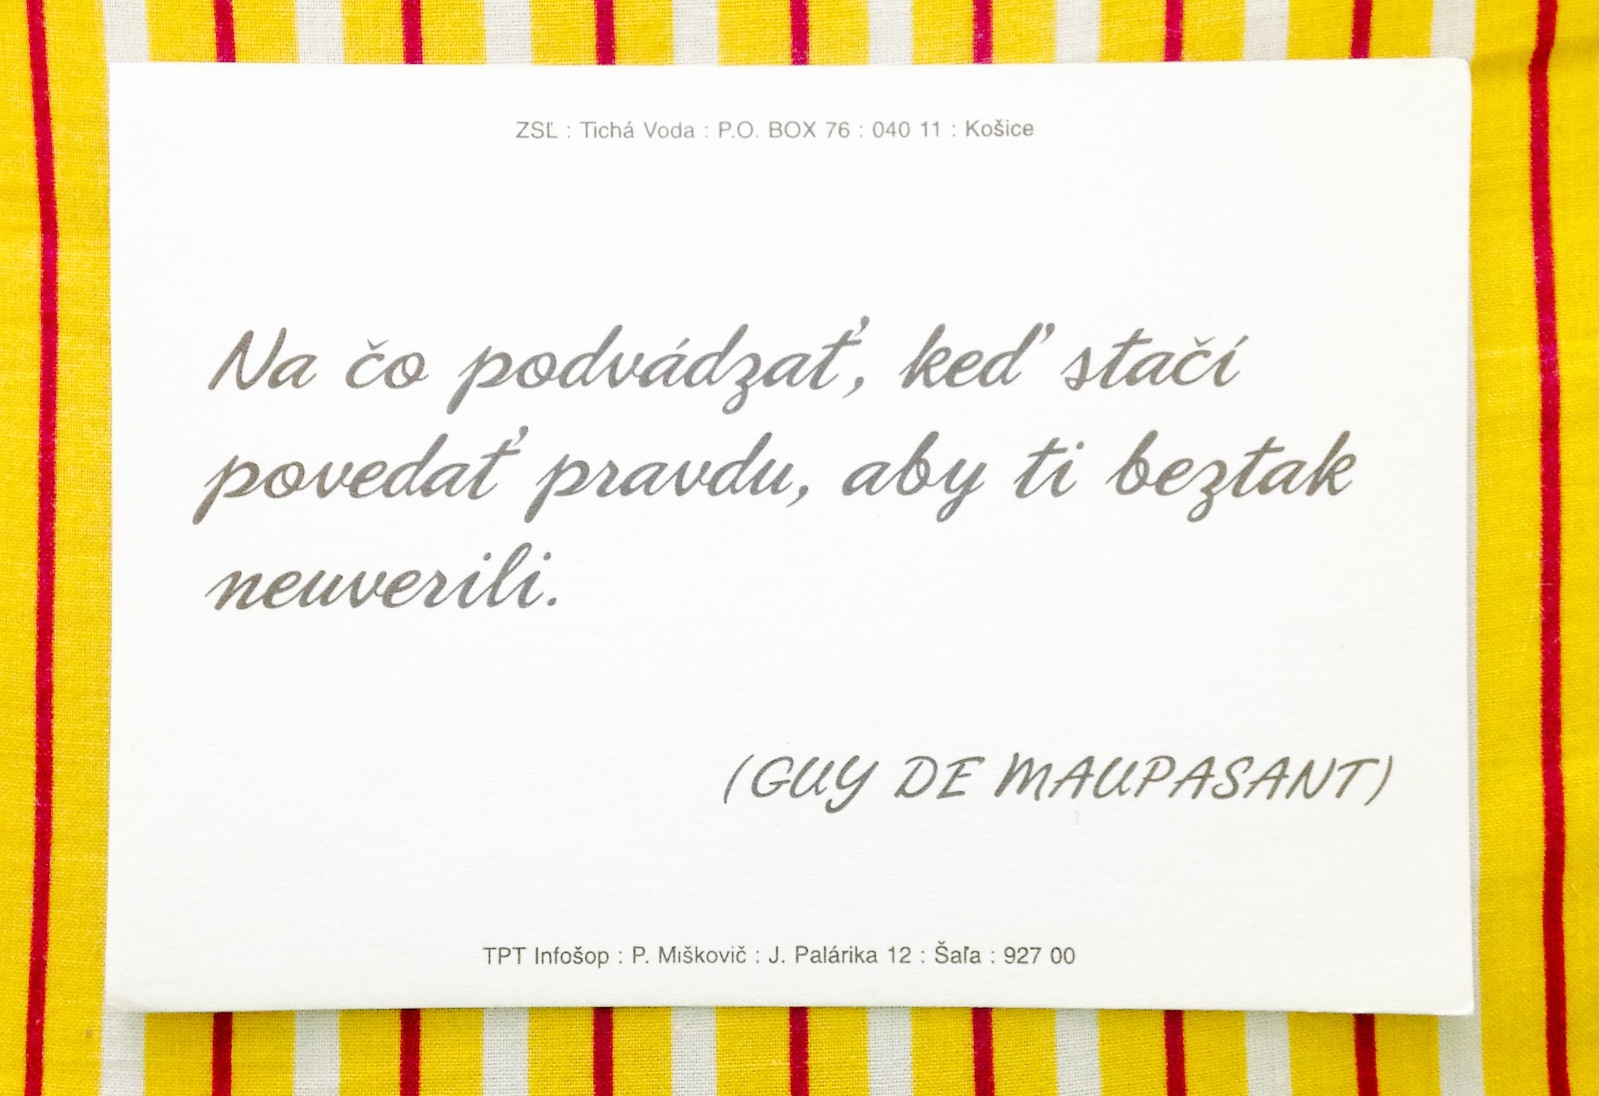 ZSĽ : Tichá Voda : P.O. BOX 76 : 040 11 : Košice
Na čo podvádzať, keď stačí
povedať pravdu, aby ti beztak
neuverili.
(GUY DE MAUPASANT)
TPT Infošop : P. Miškovič : J. Palárika 12 : Šaľa : 927 00